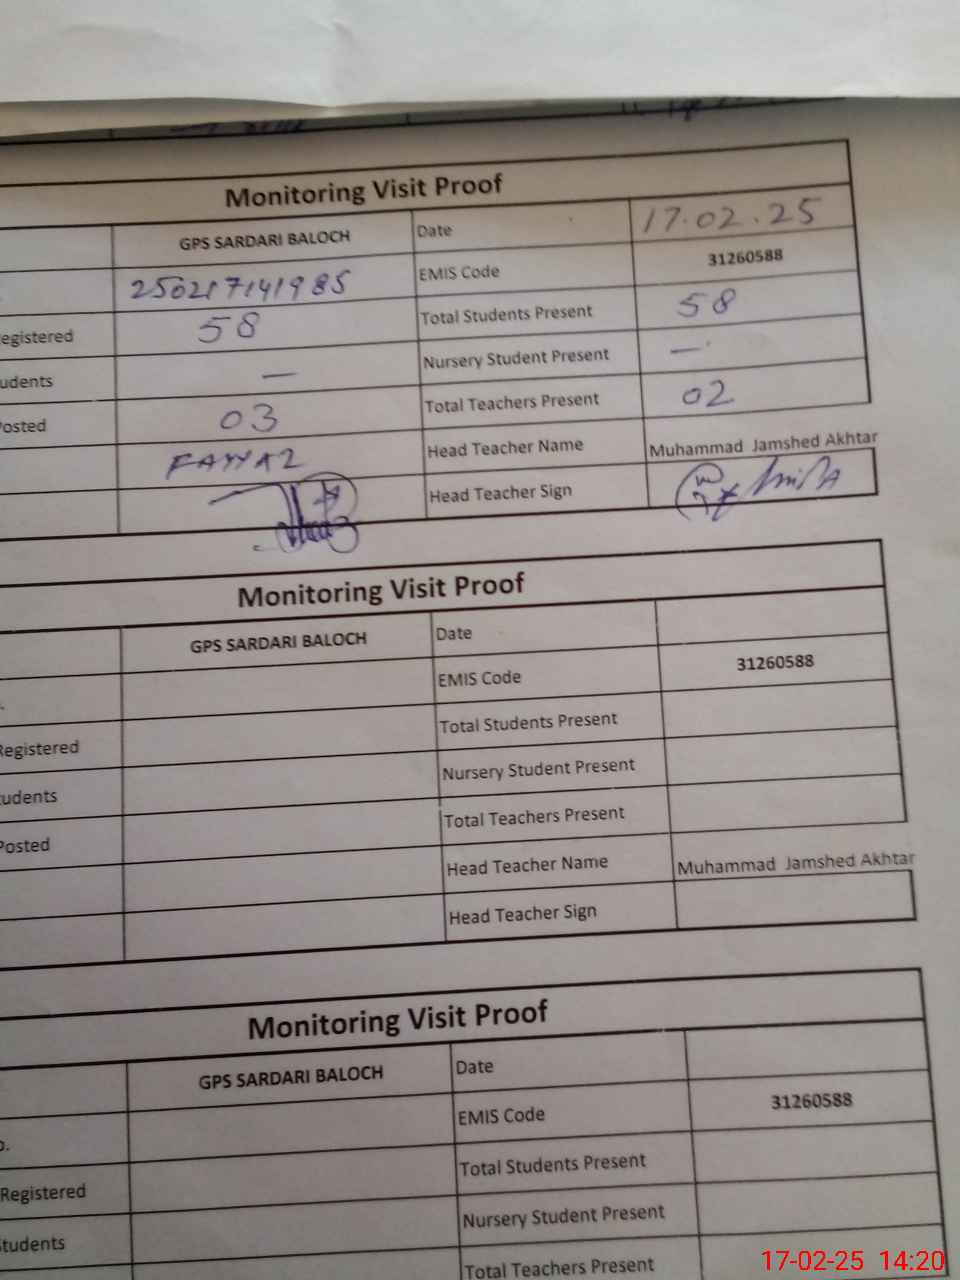 Monitoring Visit Proof
GPS SARDARI BALOCH Date 17.02.25
250217141985 EMIS Code 31260588
egistered 58 Total Students Present 58
udents — Nursery Student Present —
Posted 03 Total Teachers Present 02
FAYYAZ Head Teacher Name Muhammad Jamshed Akhtar
Head Teacher Sign
Monitoring Visit Proof
GPS SARDARI BALOCH Date
EMIS Code 31260588
Registered Total Students Present
udents Nursery Student Present
Posted Total Teachers Present
Head Teacher Name Muhammad Jamshed Akhtar
Head Teacher Sign
Monitoring Visit Proof
GPS SARDARI BALOCH Date
o. EMIS Code 31260588
Registered Total Students Present
tudents Nursery Student Present
Total Teachers Present
17-02-25 14:20